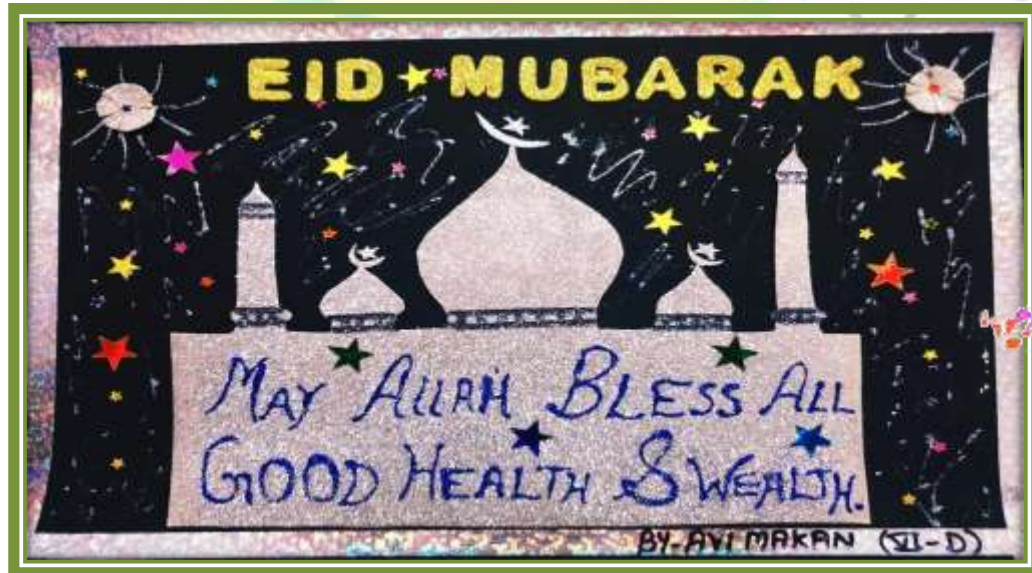 EID MUBARAK
MAY ALLAH BLESS ALL
GOOD HEALTH & WEALTH.
BY-AVI MAKAN (VI-D)